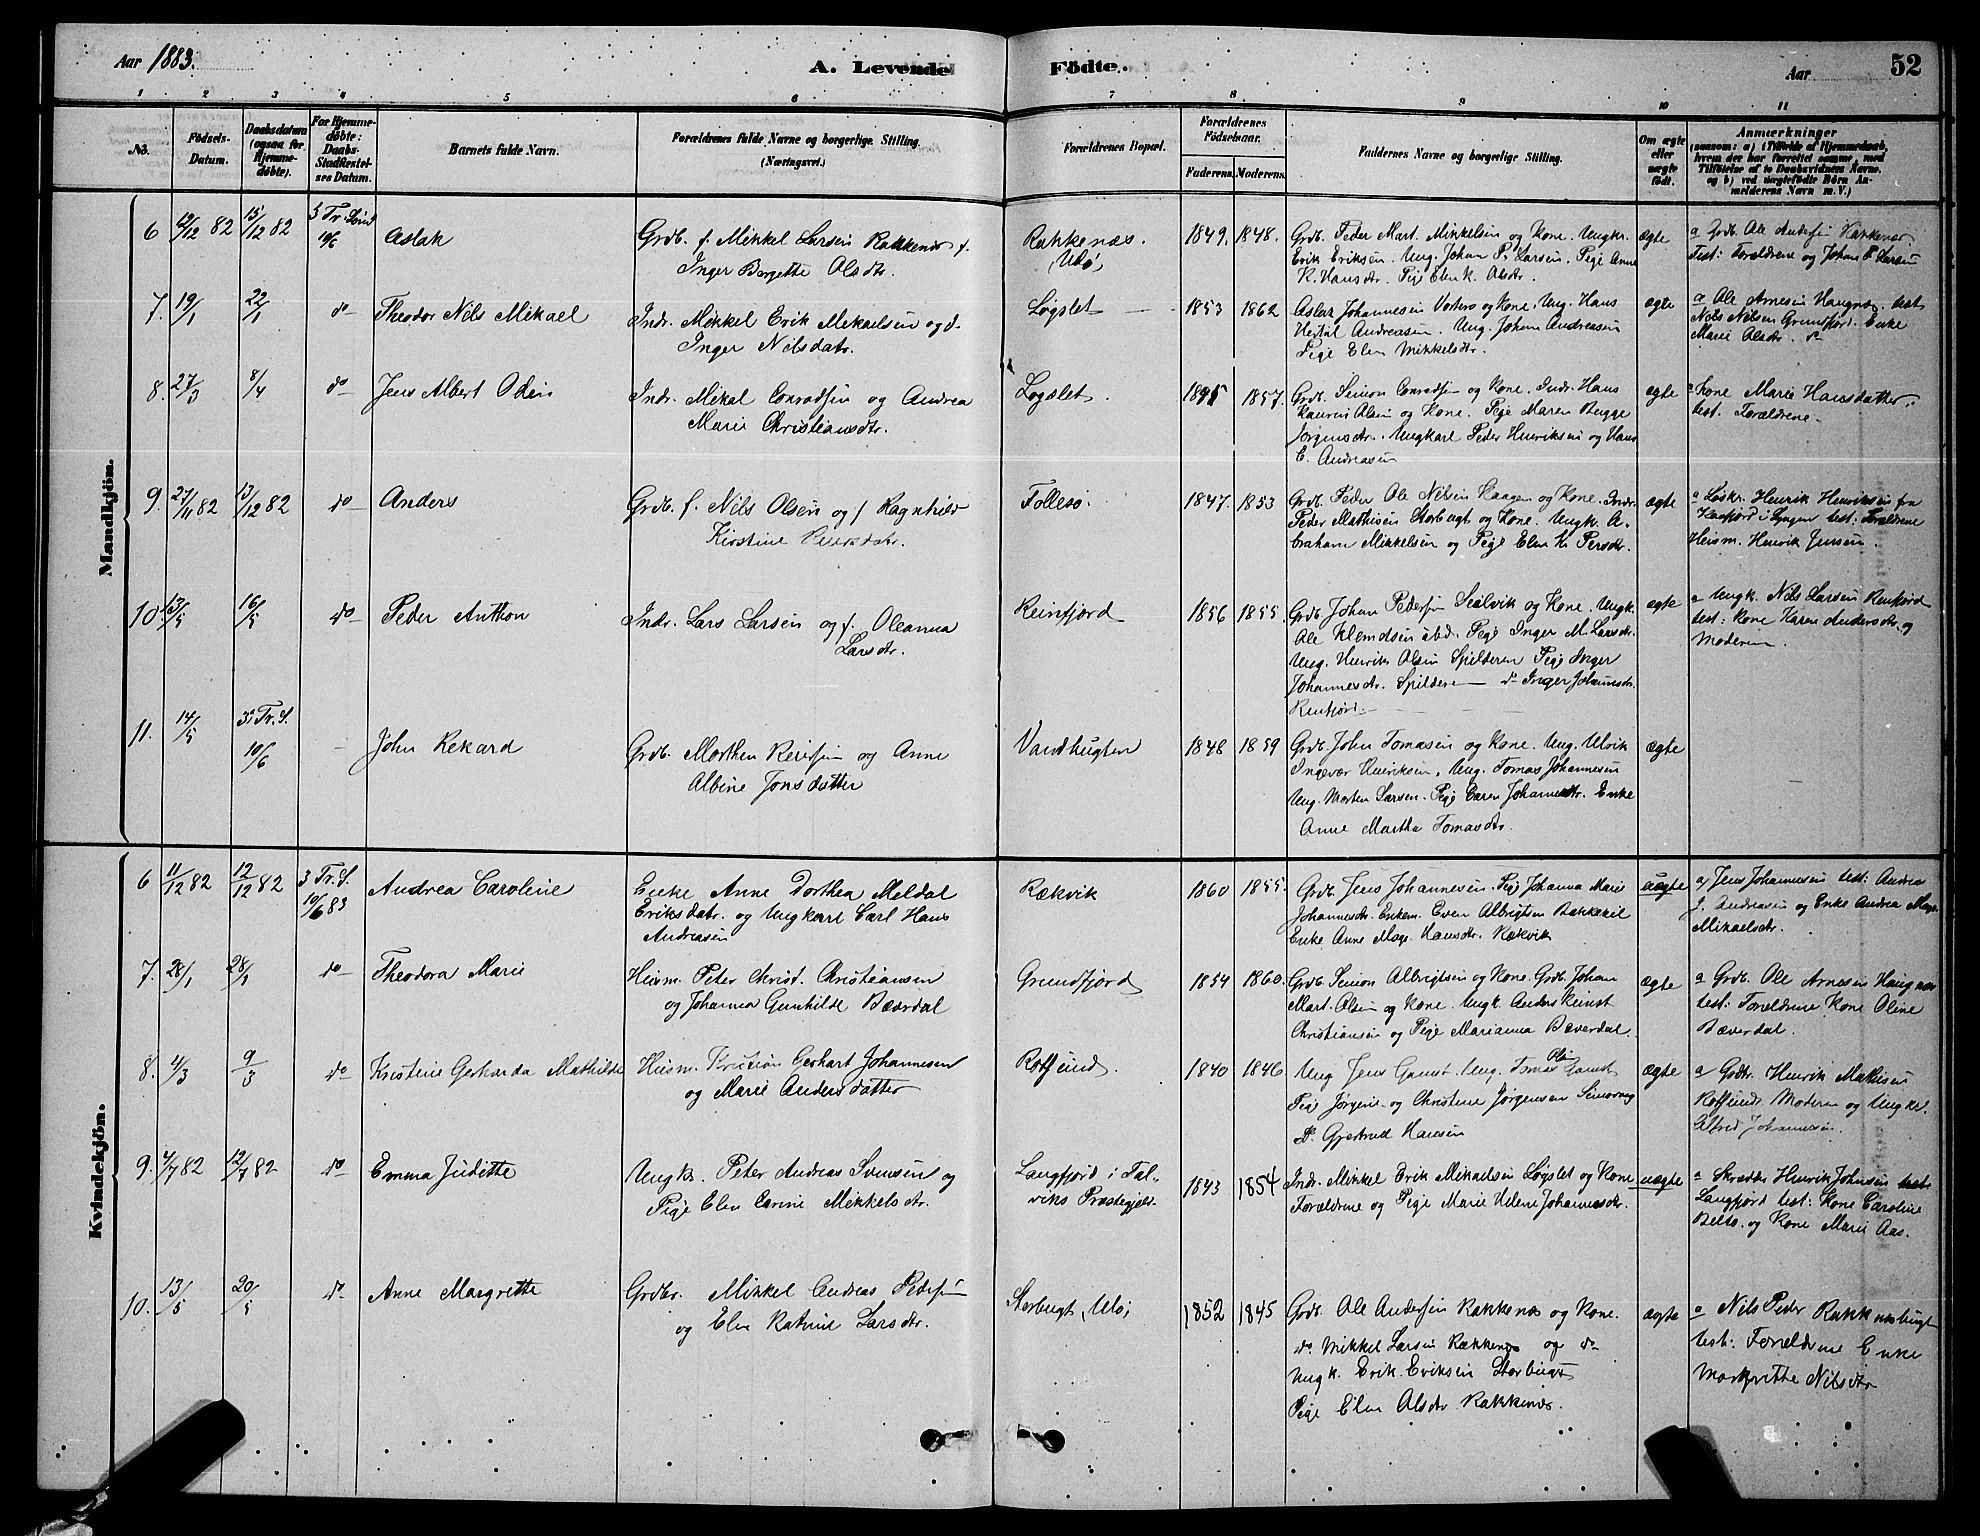 Aar 1883.
A. Levende Födte.
Aar
52
1 2 3 4 5 6 7 8 9 10 11
No.
Födsels-Datum.
Daabsdatum (ogsaa for Hjemme-døbte).
For Hjemme-døbte: Daabs-Stadfæstel-ses Datum.
Barnets fulde Navn.
Forældrenes fulde Navne og borgerlige Stilling. (Næringsvei.)
Forældrenes Bopæl.
Forældrenes Födselsaar.
Faderens. Moderens.
Faddernes Navne og borgerlige Stilling.
Om ægte eller uægte födt.
Anmærkninger
(saasom: a) i Tilfælde af Hjemmedaab, hvem der har forrettet samme, med Tilföielse af to Daabsvidners Navne, og b) ved uægtefödte Börn Anmelderens Navn m. V.)
Mandkjön.
6 12/12 82 15/12 82 3 Tr. Sönd 10/6 Aslak
Grdb. f. Mikkel Larsen Rakkenæs f.
Inger Bergette Olsdtr.
Rakkenæs.
(Ulö)
1849. 1848.
Grdb. Peder Mart. Mikkelsen og Kone. Ungkr.
Erik Eriksen. Ung. Johan P. Larsen. Pige Anne
K. Hansdtr. Pige Elen K. Olsdtr.
ægte
a Grdb. Ole Andersen Rakkenæs.
Test: Forældrene og Johan P. Larsen
7. 19/1 22/1 do Theodor Nils Mikael
Indr. Mikkel Erik Mikaelsen og
Inger Nilsdatr.
Løgslet
1853 1862
Aslak Johannesen og Kone. Ung. Hans
Andreasen. Ung. Johan Andreasen
Pige Elen Mikkelsdtr.
ægte
a Ole Arnesen Haugnæs, test
Nils Nilsen Grundfjord. Enke
Marie Olsdtr.
8. 27/3 8/4 do Jens Albert Odin
Indr. Mikal Conradsen og Andrea
Marie Christiansdtr.
Løgslet.
1857.
Grdb. Simon Conradsen og Kone. Indr. Hans
Laurits Olsen og Kone. Pige Maren Bugge
Jørgensdtr. Ungkarl Peder Henriksen og Hans
E. Andreasen
ægte
a Kone Marie Hansdatter.
test: Forældrene.
9. 27/11 82 13/12 82 do Anders
Grdb. f. Nils Olsen og f. Ragnhild
Kirstine Persdatr.
Follesö.
1847. 1853
Grdb. Peder Ole Nilsen Haagen og Kone. Indr.
Peder Mathisen Storbugt og Kone. Ungk. A-
braham Mikkelsen og Pige Elen K. Persdtr.
ægte
a Løskr. Henrik Henriksen fra
Kaafjord i Lyngen test: Forældrene
Husm. Henrik Jensen.
10. 13/5 16/5 do Peder Anthon
Indr. Lars Larsen og f. Oleanna
Larsdtr.
Reinfjord
1856 1855
Grdb. Johan Pedersen og Kone. Ungk.
Ole Klemetsen ibd. Pige Inger M. Larsdtr.
Ung. Henrik Olsen Spilderen Pige Inger
Johannesdtr. Spilderen do Inger Johannesdtr.
Reinfjord.
ægte
a Ungk. Nils Larsen Reinfjord
test: Kone Karen Andersdtr. og
Moderen
11. 14/5 3die Tr. S. 10/6 John Rekard
Grdb. Morthen Reiersen og Anne
Albine Jonsdatter
Vandbugten
1848 1859
Grdb. John Tomasen og Kone. Ung. Ulrik
Ingevar Henriksen, Ung. Tomas Johannesen
Ung. Morten Larsen. Pige Caren Johannesdtr. Enke
Anne Martha Tomasdtr.
ægte
Kvindekjön.
6 11/12 82 12/12 82 3 Tr. S. 10/6 83 Andrea Caroline
Enke Anne Dorthea Meldal
Eriksdatr. og Ungkarl Carl Hans
Andreasen
Rækvik
1860 1855.
Grdb. Jens Johannesen. Pige Johanna Marie
Johannesdr. Enkem. Even Albrigtsen Bakkekil
Enke Anne Magr. Hansdtr. Rækvik
uægte
a) Jens Johannesen test: Andrea
J. Andreasen og Enke Andrea Magr.
Mikaelsdtr.
7. 28/1 28/1 do Theodora Marie
Husm. Peter Christ. Christiansen
og Johanna Gunhilde Bæverdal
Grundfjord
1854 1860.
Grdb. Simon Albrigtsen og Kone. Grdb. Johan
Mart. Olsen og Kone. Ungk. Anders Reinst
Christiansen og Pige Marianna Bæverdal.
ægte
a Grdb. Ole Arnesen Haugnæs
test: Forældrene Kone Oline
Bæverdal.
8. 4/3 9/3 do Kristine Gerharda Mathilde
Husm. Kristian Gerhart Johannesen
og Marie Andersdatter
Rotsund.
1840 1846.
Ung Jens Gamst. Ung. Tomas Olai Gamst
Pige Jørgine og Christine Jørgensen
Do. Gjertrud Hansen
ægte
a Grdbr. Henrik Mathisen
Rotsund. Moderen og Ungkr.
Johannesen.
9. 4/7 82 12/7 82 do Emma Juditte
Ungk. Peter Andreas Svensen og
Pige Elen Carine Mikkelsdtr.
Langfjord i Tal-
viks Præstegjeld.
1843 1854
Indr. Mikkel Erik Mikaelsen Løgslet og Kone
Forældrene og Pige Marie Helene Johannesdtr.
uægte
a Skrædder Henrik Johnsen
Langfjord test: Kone Caroline
Belto. og Kone Marie Aas.
10. 13/5 20/5 do Anne Margrette
Grdbr. Mikkel Andreas Pedersen
og Elen Katrine Larsdtr.
Storbugt, Ulö,
1852 1845
Grdb. Ole Andersen Rakkenæs og Kone.
do Mikkel Larsen Rækkenæs og do
Ungk. Erik Eriksen Storbugt
Pige Elen Olsdtr Rakkenæs.
ægte
a Nils Peder Rakkenæsbugt
test: Forældrene Enke
Margrethe Nilsdtr